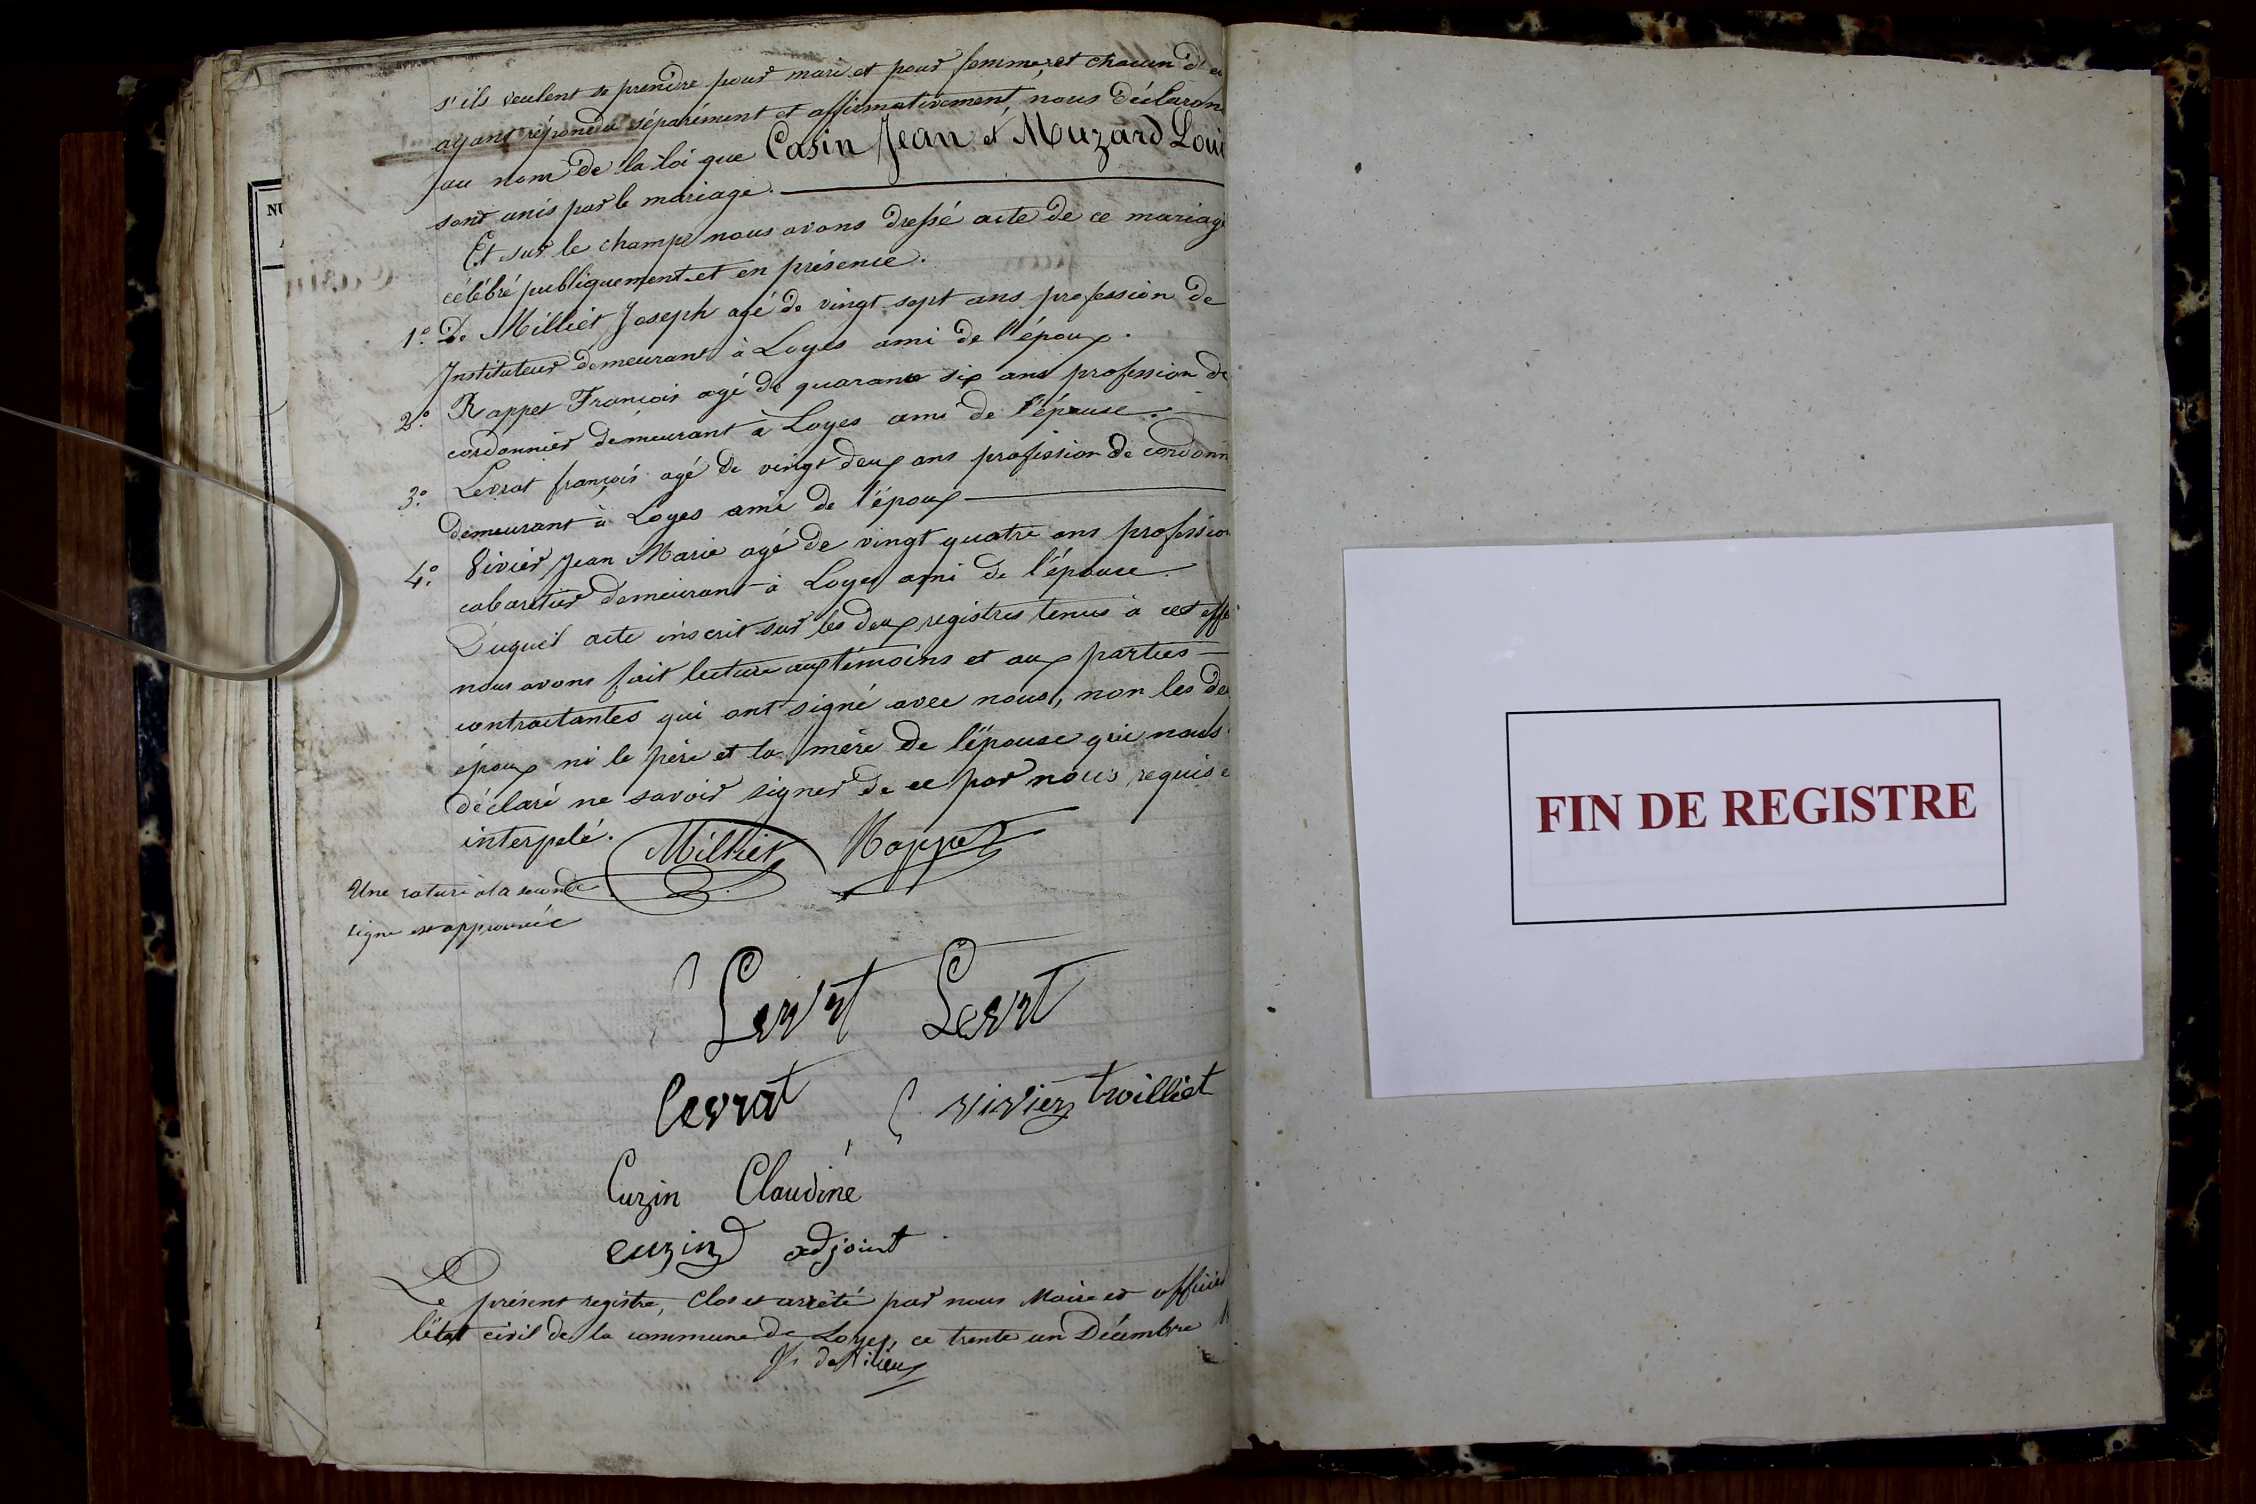 s'ils veulent se prendre pour mari et pour femme, et chacun d'eu
ayant répondu séparément et affirmativement, nous déclaron
au nom de la loi que Casin Jean et Muzard Loui
sont unis par le mariage.
Et sur le champ nous avons dressé acte de ce mariage
célébré publiquement et en présence.
1.° De Milliet Joseph agé de vingt sept ans profession de
Instituteur demeurant à Loyes ami de l'époux.
2.° Rappet François agé de quarante six ans profession de
cordonnier demeurant à Loyes ami de l'épouse.
3.° Levrat françois agé de vingt deux ans profession de cordonn
demeurant à Loyes ami de l'époux
4.° Vivier Jean Marie agé de vingt quatre ans profession
cabaretier demeurant à Loyes ami de l'épouse.
Duquel acte inscrit sur les deux registres tenus à cet effe
nous avons fait lecture aux témoins et aux parties
contractantes qui ont signé avec nous, non les de
époux ni le père et la mère de l'épouse qui nous
déclaré ne savoir signer de ce par nous requis e
interpelé.
Milliet Rappet
Une rature à la seconde
ligne est approuvée
Levrt Levrt
levrat vivier troilliet
Cuzin Claudine
cuzin adjoint
Le présent registre, clos et arrêté par nous Maire et officier
l'état civil de la commune de Loyes, ce trente un Décembre
NU
FIN DE REGISTRE